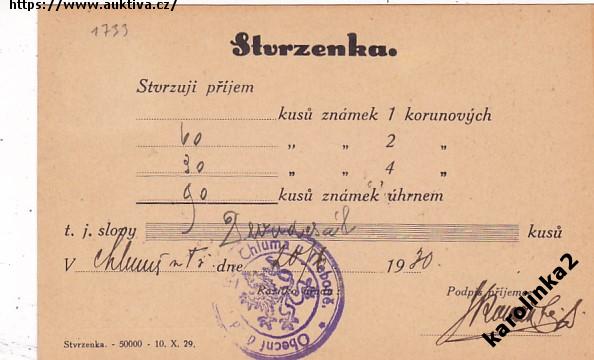 https://www.auktiva.cz/
1733
Stvrzenka.
Stvrzuji příjem
kusů známek 1 korunových
60 „ „ 2 „
30 „ „ 4 „
90 kusů známek úhrnem
t. j. slovy Devadesát kusů
V Chlumu u Tř. dne 1930
Razítko úřadu: Podpis příjemce:
Chluma u Třeboně. * Obecní
Stvrzenka. - 50000 - 10. X. 29.
karolinka2